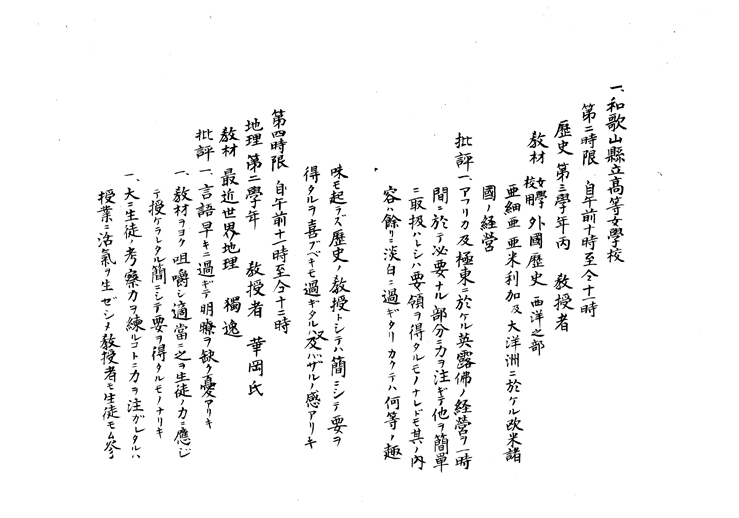 一、和歌山縣立高等女學校
第二時限　自午前十時至仝十一時
歴史　第三學年丙　教授者
教材　女學校用　外國歴史　西洋之部
亜細亜亜米利加及大洋洲ニ於ケル欧米諸
國ノ経營
批評　一、アフリカ及極東ニ於ケル英露佛ノ経營ヲ一時
間ニ於テ必要ナル部分ニ力ヲ注ギテ他ヲ簡単
ニ取扱ハレシハ要領ヲ得タルモノナレドモ其ノ内
容ハ餘リニ淡白ニ過ギタリカクテハ何等ノ趣
味モ起ラズ歴史ノ教授トシテハ簡ニシテ要ヲ
得タルヲ喜ブベキモ過ギタルハ及バザルノ感アリキ
第四時限　自午前十一時至仝十二時
地理　第二學年　教授者　華岡氏
教材　最近世界地理　獨逸
批評　一、言語早キニ過ギテ明瞭ヲ缺ク憂アリキ
一、教材ヲヨク咀嚼シ適當ニ之ヲ生徒ノ力ニ應ジ
テ授ケラレタル簡ニシテ要ヲ得タルモノナリキ
一、大ニ生徒ノ考察力ヲ練ルコトニ力ヲ注ガレタルハ
授業ニ活氣ヲ生ゼシメ教授者モ生徒モ